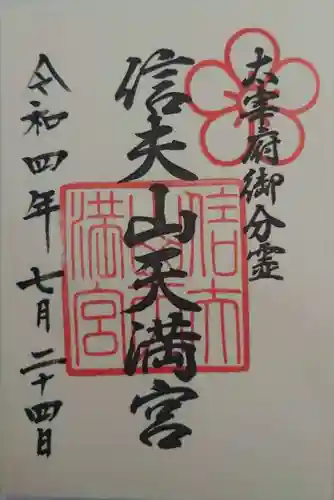 太宰府御分霊
信夫山天満宮
令和四年七月二十四日
信夫
山天
満宮